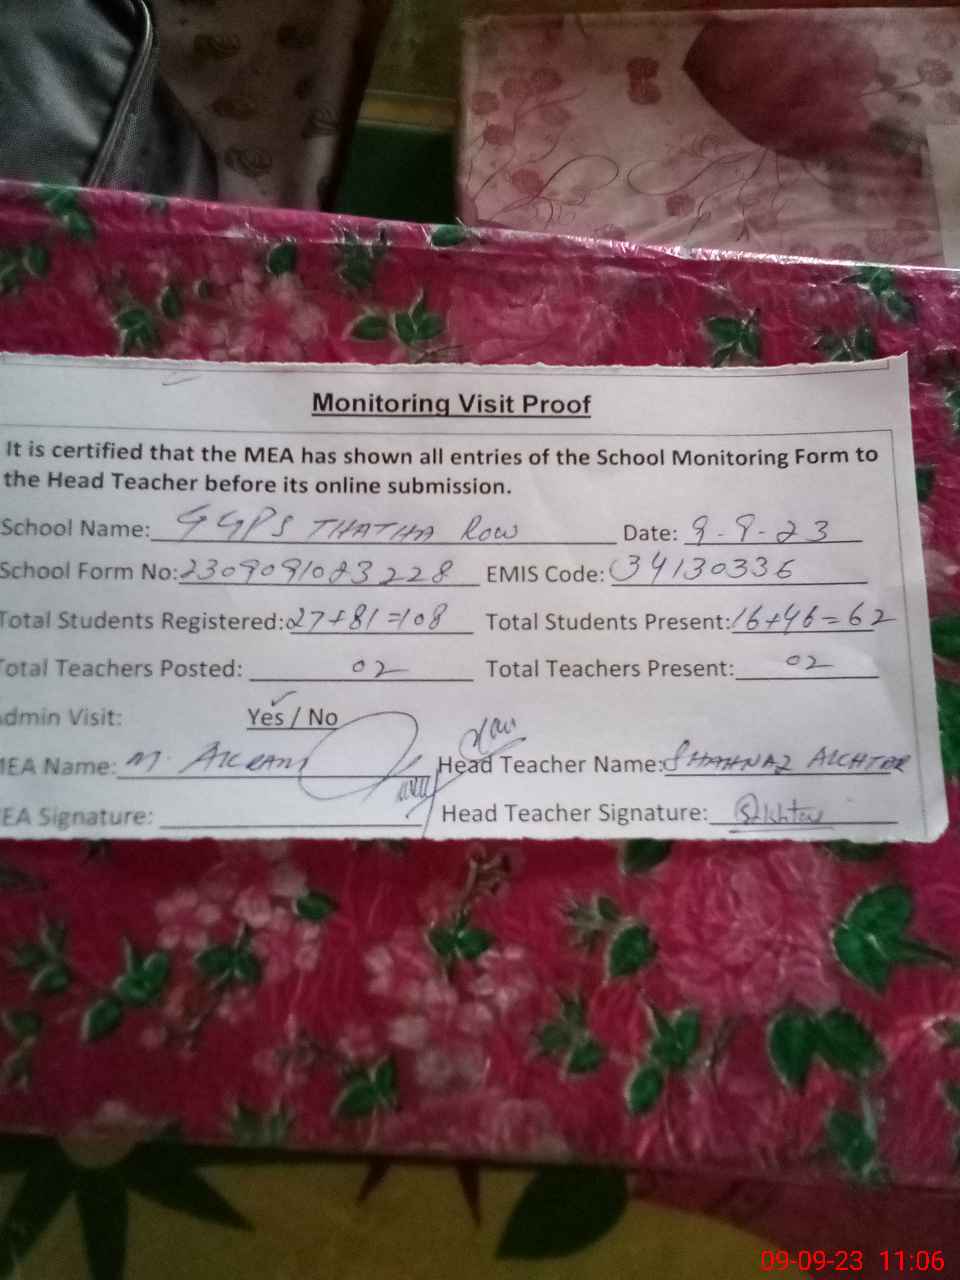 Monitoring Visit Proof
It is certified that the MEA has shown all entries of the School Monitoring Form to
the Head Teacher before its online submission.
School Name: GGPS THATHA Row Date: 9-9-23
School Form No: 2309091083228 EMIS Code: 34130336
Total Students Registered: 27+81=108 Total Students Present: 16+46=62
Total Teachers Posted: 02 Total Teachers Present: 02
dmin Visit: Yes / No
MEA Name: M. AKRAM Head Teacher Name: SHAHNAZ AKHTER
EA Signature: Head Teacher Signature: SAkhtar
09-09-23 11:06